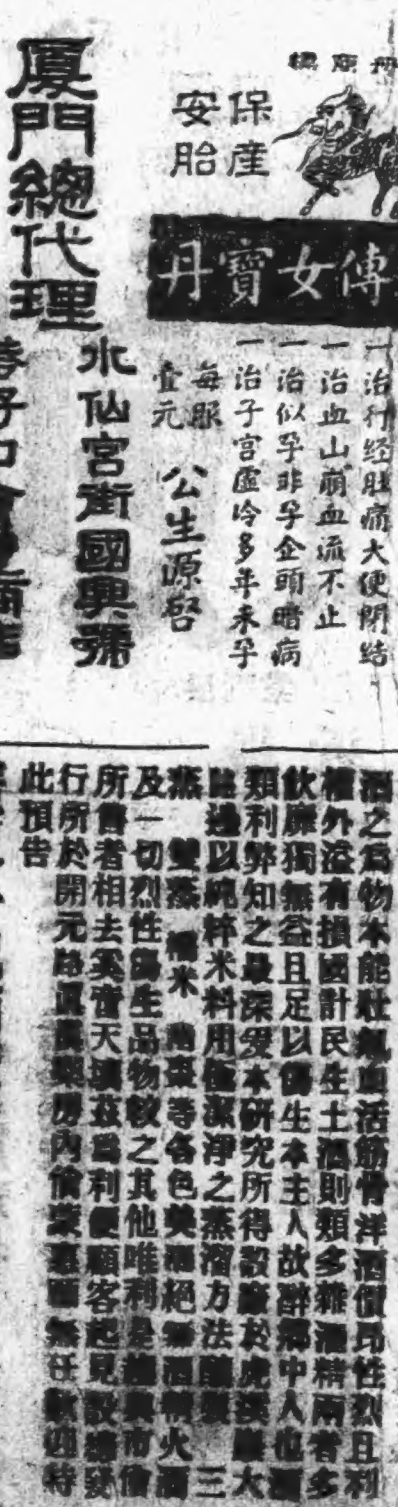 標麻
保產
安胎
傳女寶丹
一治行經肚痛大便閉結
一治血山崩血流不止
一治似孕非孕企頭暗病
一治子宮虛冷多年未孕
每服
壹元
公生源啓
水仙宮街國興號
廈門總代理
酒之爲物本能壯氣血活筋骨洋酒價昂性烈且利
權外溢有損國計民生土酒則類多雜酒精兩者多
飲靡獨無益且足以傷生本主人故醉鄉中人也酒
類利弊知之最深爰本研究所得設廠於虎溪 大
路邊以純粹米料用極潔凈之蒸溜方法釀製 三
燕 雙燕 糯米 等各色美酒絕無酒精火酒
及一切烈性傷生品物較之其他唯利是 與市儈
所售者相去奚啻天壤茲爲利便顧客起見設總發
行所於開元路 房內倘蒙惠顧無任歡迎特
此預告